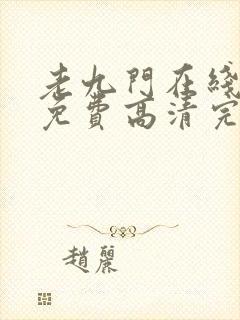 老九門在綫
免費高清完
趙麗